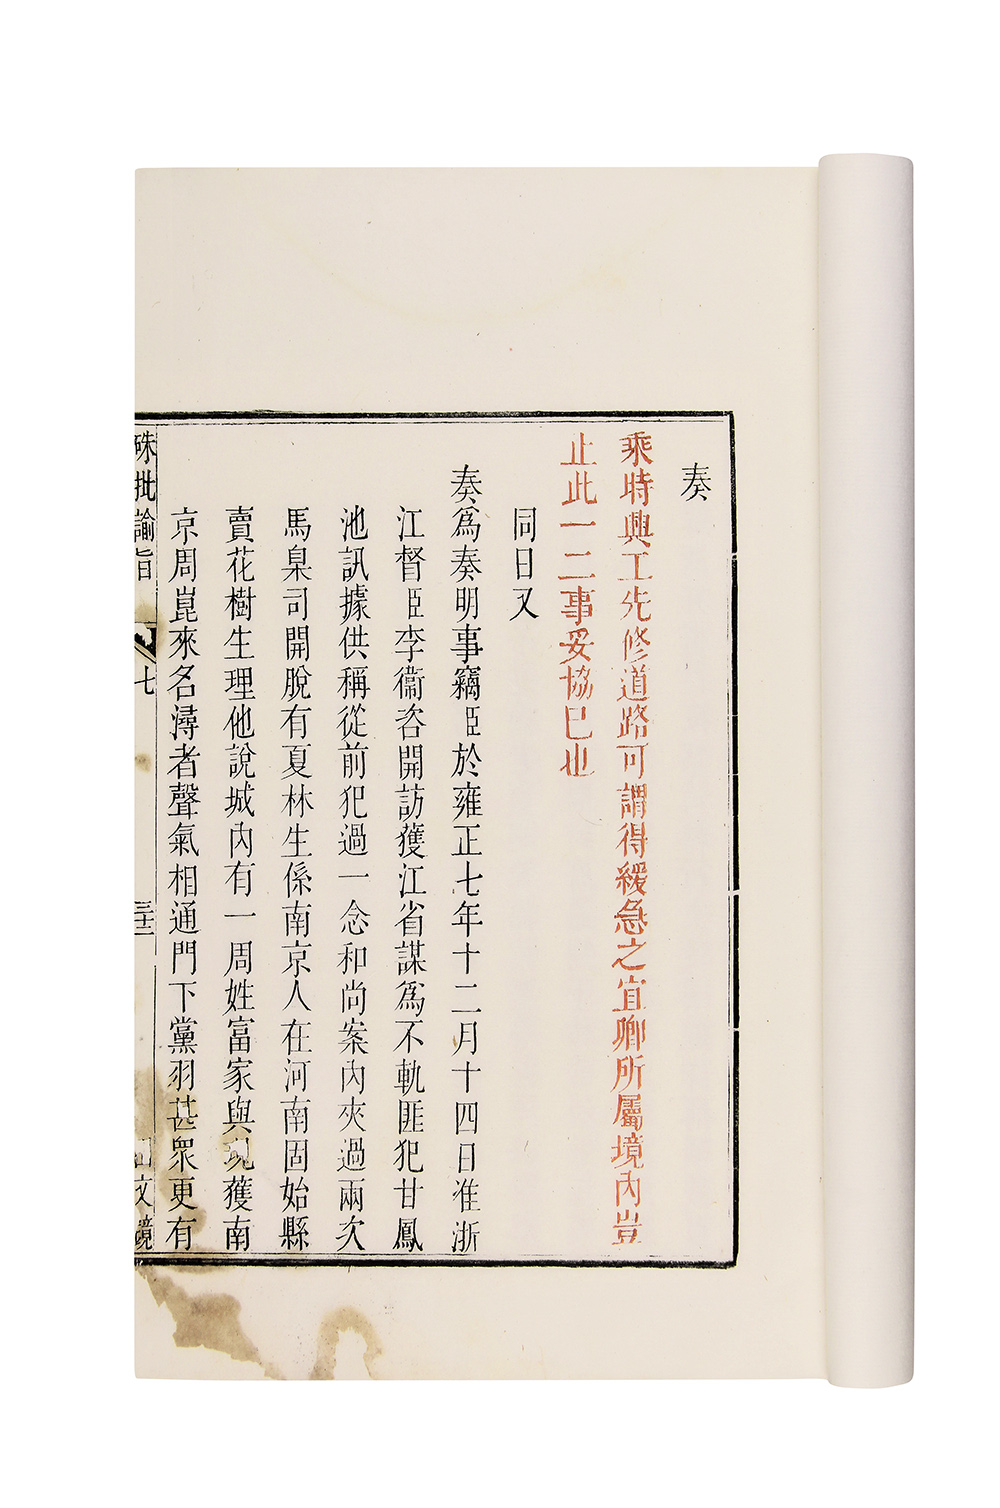 奏
乘時興工先修道路可謂得緩急之宜卿所屬境內豈
止此一二事妥協已也
同日又
奏為奏明事竊臣於雍正七年十二月十四日准浙
江督臣李衞咨開訪獲江省謀為不軌匪犯甘鳳
池訊據供稱從前犯過一念和尚案內夾過兩次
馬臬司開脫有夏林生係南京人在河南固始縣
賣花樹生理他說城內有一周姓富家與現獲南
京周崑來名潯者聲氣相通門下黨羽甚眾更有
硃批諭旨 七 三十二 文鏡